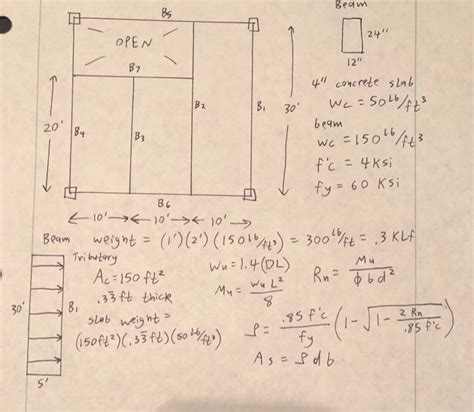 Beam
24"
12"
B5
OPEN
B7
B4
B3
B2
B1
B6
20'
30'
10' 10' 10'
4" concrete slab
Wc = 50 lb/ft³
beam
Wc = 150 lb/ft³
f'c = 4 Ksi
fy = 60 Ksi
Beam weight = (1')(2')(150 lb/ft³) = 300 lb/ft = .3 KLf
Tributary
Ac = 150 ft²
.33̅ ft thick
slab weight =
(150ft²)(.33̅ft)(50 lb/ft³)
30'
B1
5'
Wu = 1.4(DL)
Mu = Wu L²/8
Rn = Mu/ϕbd²
ρ = .85 f'c/fy (1 - √(1 - 2Rn/.85 f'c))
As = ρdb